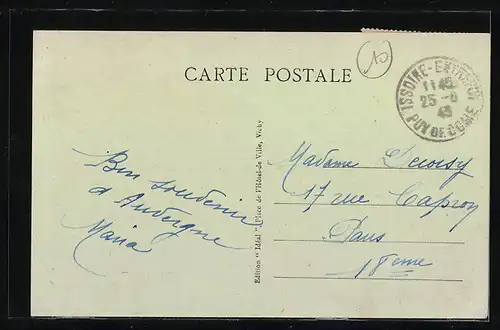 CARTE POSTALE
ISSOIRE-ENTREPOT
11 45
25 -6
45
PUY DE DOME
Bon souvenir
d'Auvergne
Edition "Idéal" Place de l'Hôtel-de-Ville, Vichy
Madame
17 rue Capron
Paris
18eme